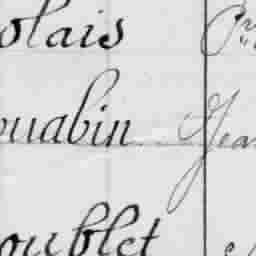 olais Pr
ouabin Jea
oublet